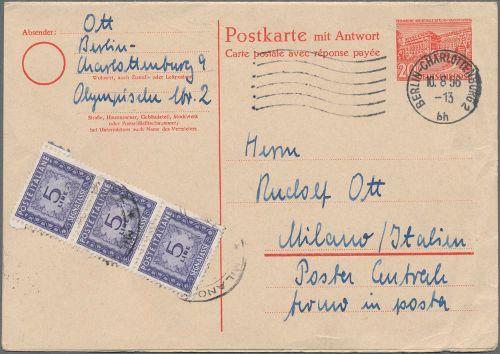 Absender:
Ott
Berlin-
Charlottenburg 9
Wohnort, auch Zustell- oder Leitpostamt
Olympische Str. 2
Straße, Hausnummer, Gebäudeteil, Stockwerk
oder Postschließfachnummer;
bei Untermietern auch Name des Vermieters
Postkarte mit Antwort
Carte postale avec réponse payée
20
BERLIN-CHARLOTTENBURG 2
10.8.56
-13
bh
Herrn
Rudolf Ott
Milano/Italien
Poster Centrale
fermo in posta
POSTE ITALIANE
5
LIRE
SEGNATASSE
POSTE ITALIANE
5
LIRE
POSTE ITALIANE
5
LIRE
MILANO